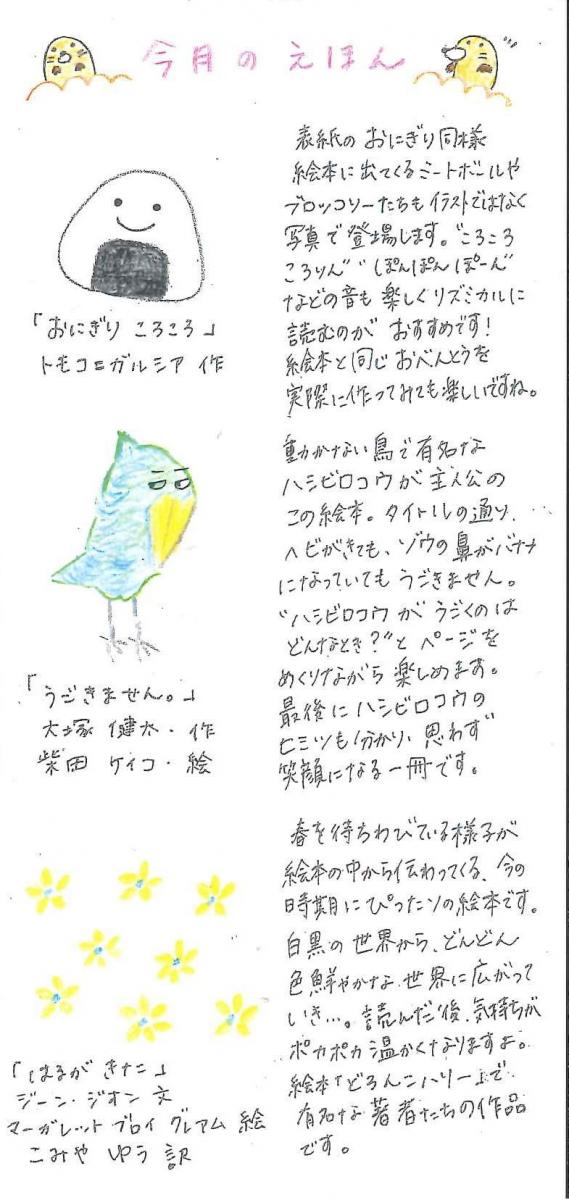 今月のえほん
表紙のおにぎり同様
絵本に出てくるミートボールや
ブロッコリーたちもイラストではなく
写真で登場します。"ころころ
ころりん" "ぽんぽんぽーん"
などの音も楽しくリズミカルに
読むのがおすすめです!
絵本と同じおべんとうを
実際に作ってみても楽しいですね。
「おにぎり ころころ」
トモコ=ガルシア 作
動かない鳥で有名な
ハシビロコウが主人公の
この絵本。タイトルの通り、
ヘビがきても、ゾウの鼻がバナナ
になっていてもうごきません。
"ハシビロコウがうごくのは
どんなとき?"とページを
めくりながら楽しめます。
最後にハシビロコウの
ヒミツも分かり、思わず
笑顔になる一冊です。
「うごきません。」
大塚 健太・作
柴田 ケイコ・絵
春を待ちわびている様子が
絵本の中から伝わってくる、今の
時期にぴったりの絵本です。
白黒の世界から、どんどん
色鮮やかな世界に広がって
いき…。読んだ後、気持ちが
ポカポカ温かくなりますよ。
絵本「どろんこハリー」で
有名な著者たちの作品
です。
「はるがきた」
ジーン・ジオン 文
マーガレット ブロイ グレアム 絵
こみや ゆう 訳